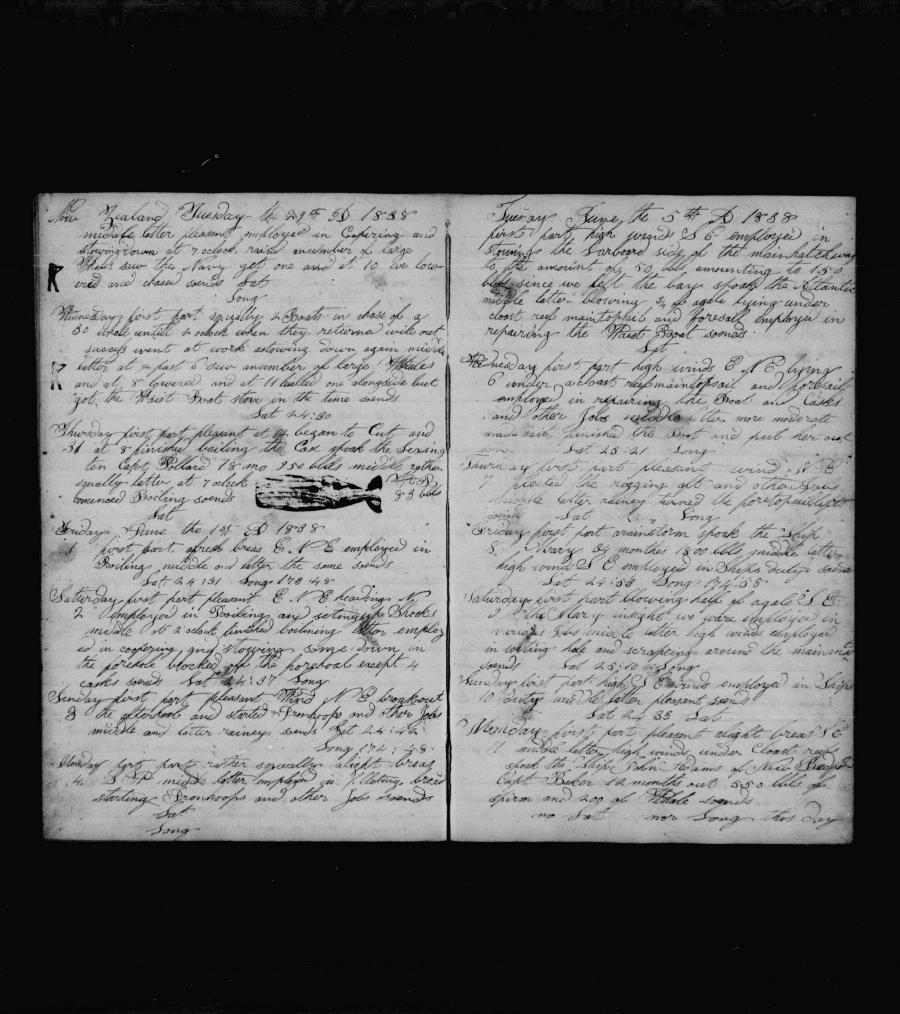 New Zealand Tuesday the 29th AD 1838
middle latter pleasent employed in Copering and
stowing down at 7 oclock raised anumber of large
Whales saw the Navy get one and at 10 we low
ered and chased soends Lat
Long
Wednesday first part squally 4 Boats in chase of a
30 whale until 2 oclock when they returned with out
success went at work astowing down again middle
latter at ½ past 6 saw anumber of large Whales
and at 8 lowered and at 11 halled one alongside but
got the Waist Boat stove in the time soends
Lat 24:30
Thursday first part plesant at began to Cut and
31 at 8 finished bailing the Case spoak the Lexing
ton Capt Pollard 18 mo 950 bbls middle rather
squally latter at 7 oclock
comenced Boiling soends 83 bbls
Lat
Friday June the 1st AD 1838
1 first part afresh breas E N E employed in
Boiling middle and latter the same soends
Lat 24:31 Long 173:48
Satterday first part pleasent E.N.E heading N
2 employed in Boiling and setingup Shooks
middle at 2 oclock finished boilening latter employ
ed in coopering and stowing some down in
the forehole blocked off the forehoal except 4
casks soends Lat 24:37 Long
Sunday first part pleasent Wind N E broak out
3 the afterhoal and started Ironhoops and other Jobs
middle and latter rainey soends Lat 24:42
Long 174:48
Monday first part rather squally alight breas
4 middle latter employed in filleling bread
starting Ironhoops and other Jobs soends
Lat
Long
Tuesday June the 5th AD 1838
first part high wind S E employed in
stowing the Larboard side of the mainhatchway
to the amount of 50 bbls amounting to 150
bbls since we left the bay spoak the Atlantic
middle latter blowing ¾ of agale lying under
clost reef maintopsail and foresail employed in
repairing the Waist Boat soends
Lat
Wednesday first part high winds E N E lying
6 under acloast reef maintopsail and foresail
employed in repairing the Boat and Casks
and other Jobs middle latter more moderate
made sail finished the Boat and put her out
soends Lat 25:21 Long
Thursday first part pleasent wind N E
7 the rigging aft and other Jobs
middle latter rainey turned the foretopsail
soends Lat Long
Friday first part arainstorm spoak the Ship
8 Mary 34 monthes 1800 bbls middle latter
high wind S E employed in Ships duty soends
Lat 24:58 Long 174:58
Saturday first part blowing half of agale S E
9 the Mary insight we ware employed in
verious Jobs middle latter high winds employed
in hole and scrapeing around the mainmast
soends Lat 25:10 Long
Sunday first part high S E winds employed in Ships
10 duty middle latter plesent soends
Lat 24 35 Lat
Monday first part pleasent alight breas S E
11 middle latter high winds under Cloast reef
spoak the Ship John Adams of New Bedford
Capt Baker 12 months out 550 bbls of
Spirm and 200 of Whale soends
no Lat nor Long this day